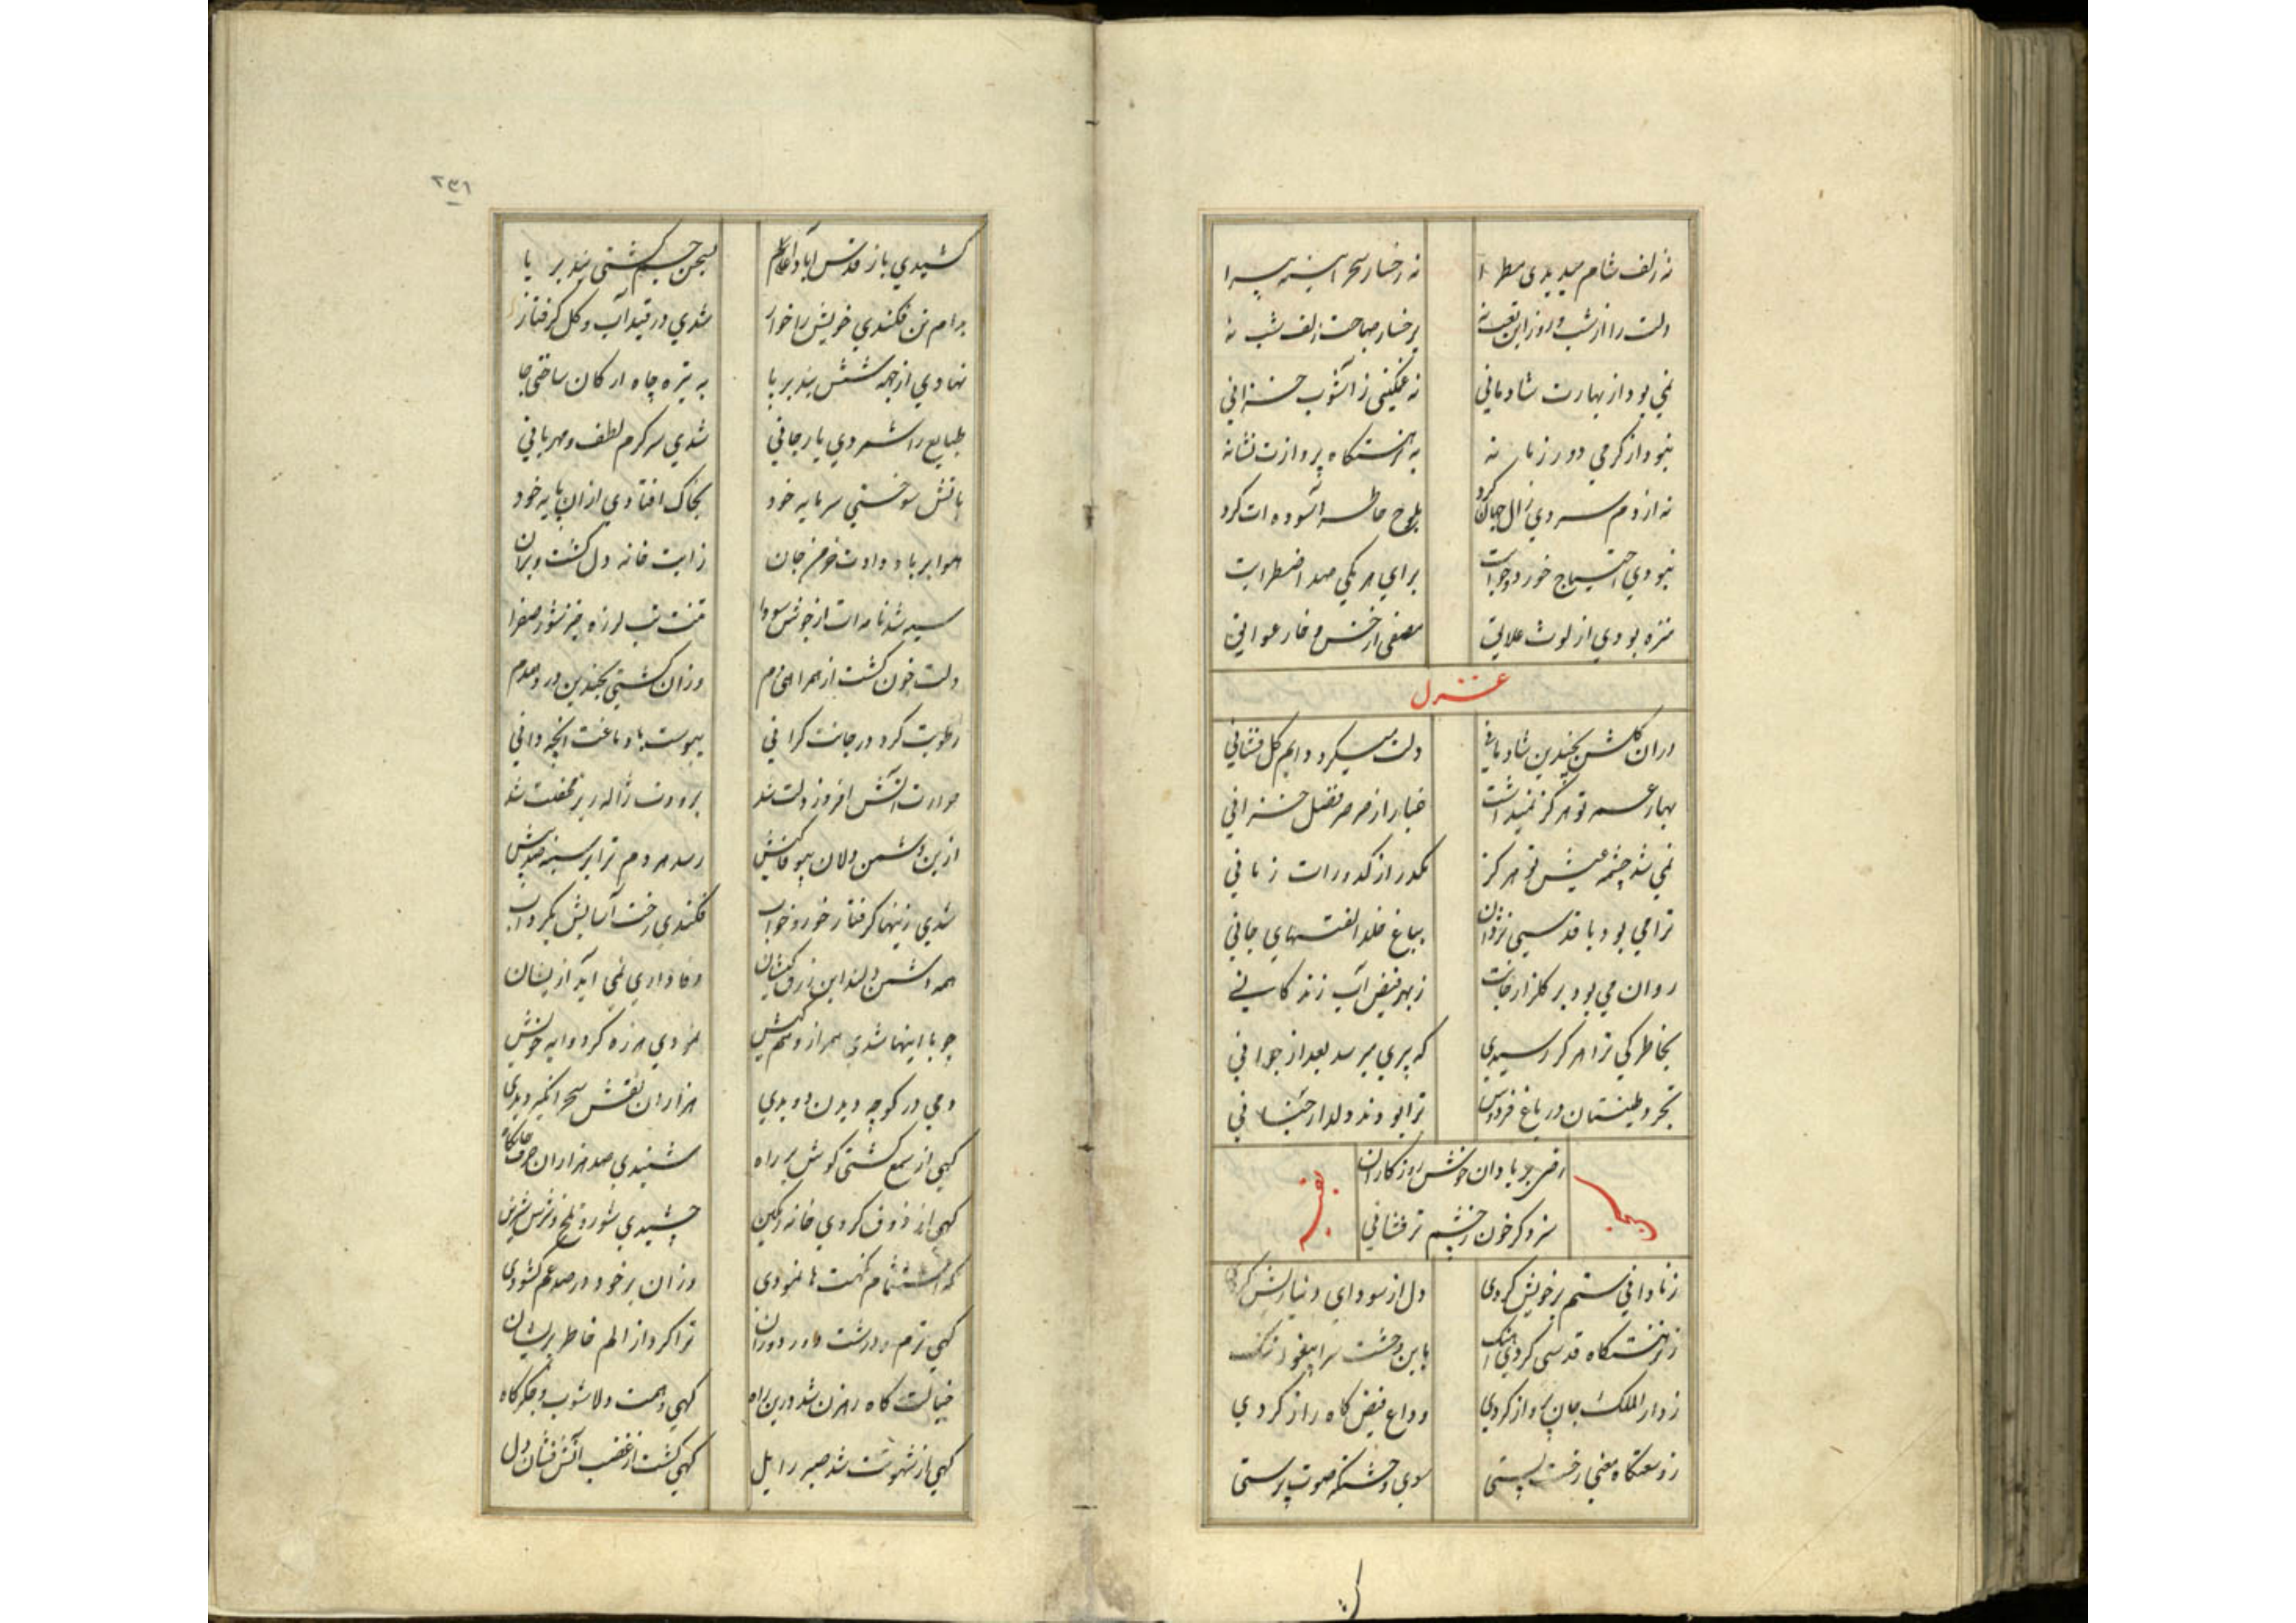 نه زلف شام میدیدی مطرا
نه رخسار سحر آینه سیرا
دلت را از شب و روز این تعب نه
بر خسار صباحت زلف شب نه
نمی بود از بهارت شادمانی
نه غمکینی ز آشوب خزانی
نبود از کرمی دور زمانه
به نزهتکاه پروازت نشانه
نه از دم سردی زال جهان کرد
بلوح خاطر آسوده ات کرد
نبودی احتیاج خورد و خوابت
برای هر یکی صد اضطرابت
منزه بودی از لوث علایق
مصفی از خس و خار عوایق
غزل
دران کلشن بچندین شادمانی
دلت میکرد دایم کل فشانی
بهار عمر تو هرکز نمیداشت
غبار از صرصر فصل خزانی
نمی شد چشمه عیش تو هرکز
مکدر از کدورات زمانی
ترا می بود با قدسی نژادان
بباغ خلد الفتهای جانی
روان می بود بر کلزار جانت
ز بهر فیض آب زندکانی
بخاطر کی ترا هرکز رسیدی
که پیری میرسد بعد از جوانی
تجرد طینتان در باغ فردوس
ترا بودند دلدار
رفی بر یاد آن خوش روزکاران
سزد کر خون ز چشم تر فشانی
ز نادانی ستم بر خویش کردی
دل از سودای دنیا ریش کردی
ز نزهتکاه قدسی کردی آهنک
باین وحشت سرای
ز دار الملک جان پرواز کردی
وداع فیض کاه راز کردی
ز وسعتکاه معنی رخت بستی
سوی وحشتکه صورت پرستی
۲۳۱
کشیدی پا ز قدس آباد اعظم
بسجن جسم کشتی بند بر پا
بدام تن فکندی خویش را خوار
شدی در قید آب و کل کرفتار
نهادی از جهه شش بند بر پا
به تیره چاه ارکان ساختی جا
طبایع را شمردی یار جانی
شدی سرکرم لطف و مهربانی
باتش سوختی سرمایه خود
بخاک افتادی از ان پایه خود
هوا بر باد دادت خرمن جان
ز ابت خانه دل کشت ویران
سیه شد نامه ات از جوش سودا
تنت تب لرزه خیز شور صفرا
دلت خون کشت از همراهی دم
وزان کشتی بچندین درد همدم
رطوبت کرد در جانت کرانی
یبوست با دماغت انچه دانی
حرارت آتش افروز دلت شد
برودت ژاله ریز محفلت شد
ازین دشمن دلان بیوفا کیش
رسد هر دم ترا بر سینه صد نیش
شدی زینها کرفتار خور و خواب
فکندی رخت آسایش بکرداب
همه دشمن دلند این زرق کیشان
وفاداری نمی آید ازیشان
چو با اینها شدی همراز و هم کیش
نمودی هرزه کرد وایه خویش
دمی در کوچه دیدن دویدی
هزاران نقش سحر انکیز دیدی
کهی از سمع کشتی کوش بر راه
شنیدی صد هزاران حرف جانکاه
کهی از ذوق کردی خانه رنکین
چشیدی شور و تلخ و ترش و شیرین
که استشمام نکهت ها نمودی
وزان بر خود در صد غم کشودی
کهی نرم و درشت دور دوران
ترا کرد از الم خاطر پریشان
خیالت کاه رهزن شد درین راه
کهی وهمت دلاشوب و جکرکاه
کهی از شهوتت شد صبر زایل
کهی کشت از غضب آتش فشان دل